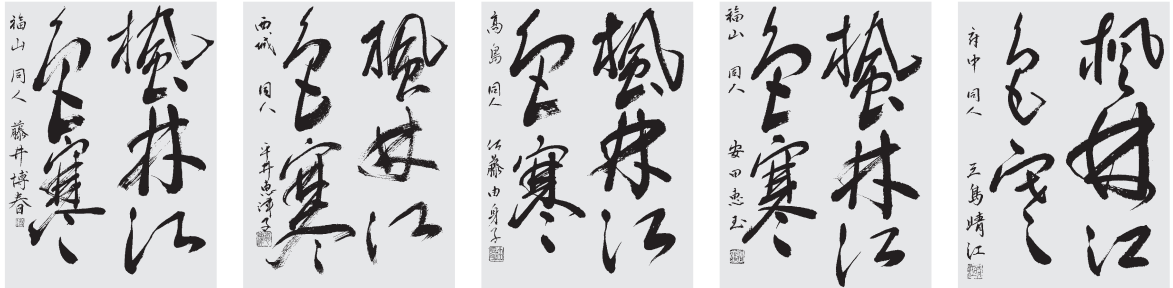 楓林江
色寒
福山 同人 藤井博春
楓林江
色寒
西城 同人 平井恵津子
楓林江
色寒
高島 同人 佐藤由身子
楓林江
色寒
福山 同人 安田恵玉
楓林江
色寒
府中 同人 三島晴江